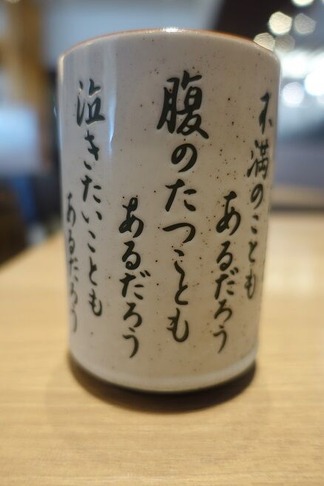 不満のことも
あるだろう
腹のたつことも
あるだろう
泣きたいことも
あるだろう